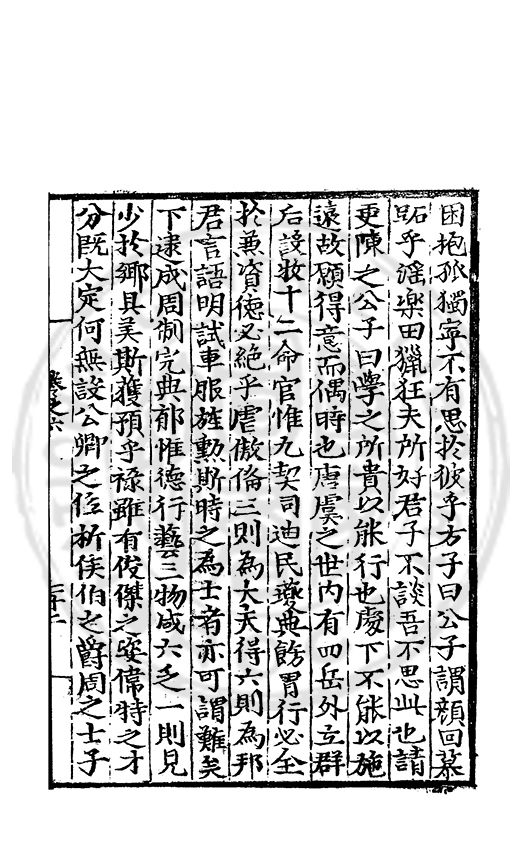 困抱孤獨寧不有思於彼乎方子曰公子謂顏回慕
跖乎滛樂田獵狂夫所好君子不談吾不思此也請
更陳之公子曰學之所貴以能行也處下不能以施
遠故願得意而偶時也唐虞之世内有四岳外立群
后設牧十二命官惟九契司迪民夔典飭胃行必全
於兼資德必絶乎虐傲脩三則為大夫得六則為邦
君言語明試車服旌勲斯時之為士者亦可謂難矣
下逮成周制完典郁惟德行藝三物咸六乏一則見
少於鄉具美斯獲預乎禄雖有俊傑之姿偉特之才
分既大定何無設公卿之位析侯伯之爵周之士子
卷之六
二十二